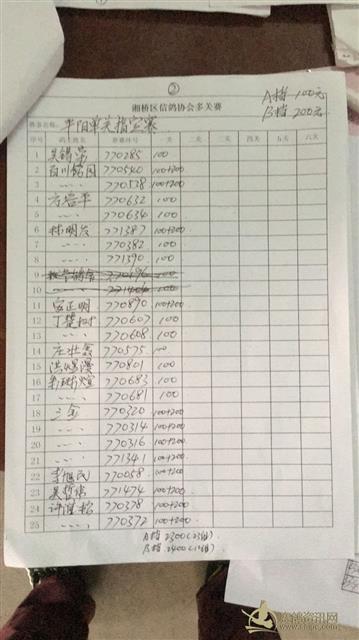 ②
湘桥区信鸽协会多关赛
A档 100元
B档 200元
赛事名称: 平阳单关指定赛
序号 鸽主姓名 参赛环号 一关 二关 三关 四关 五关 六关
1 770285 100
2 百川铭园 770540 100+200
3 〃 770538 100+200
4 方岩平 770632 100
5 〃 770634 100
6 林明友 771387 100+200
7 〃 770382 100
8 〃 771390 100
9 100
10 100
11 正明 770890 100+200
12 丁楚树 770607 100
13 〃 770608 100
14 庄壮鑫 770575 100
15 洪 770801 100
16 770683 100
17 〃 770681 100
18 三金 770320 100+200
19 〃 770314 100+200
20 〃 770316 100+200
21 〃 771341 100+200
22 李旭民 770058 100+200
23 吴哲伟 771474 100+200
24 许 770378 100+200
25 〃 770372 100+200
A档 2300(23组)
B档 2400(12组)
赛鸽资讯网